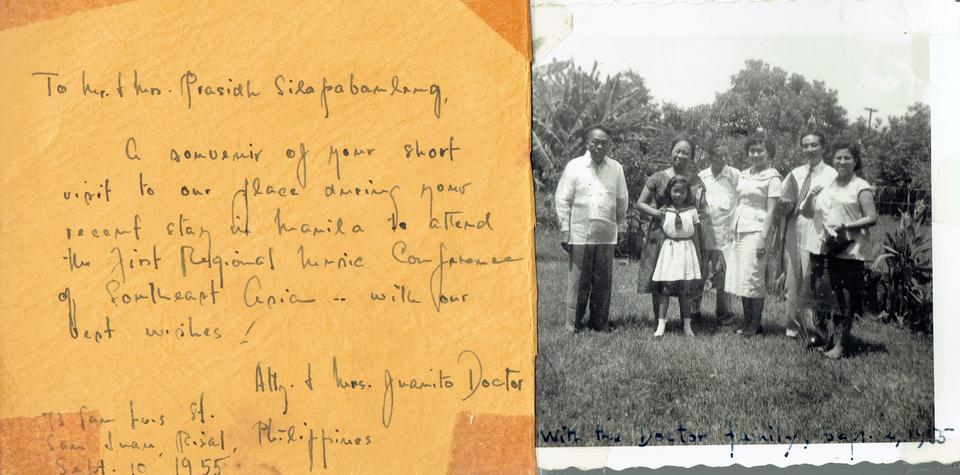 To Mr. & Mrs. Prasidh Silapabanleng,
A souvenir of your short
visit to our place during your
recent stay in Manila to attend
the First Regional Music Conference
of Southeast Asia -- with our
best wishes!
Atty. & Mrs. Juanito Doctor
73 San Luis St.
San Juan, Rizal,
Philippines
Sept. 10, 1955
With the Doctor family, Sept. 1955